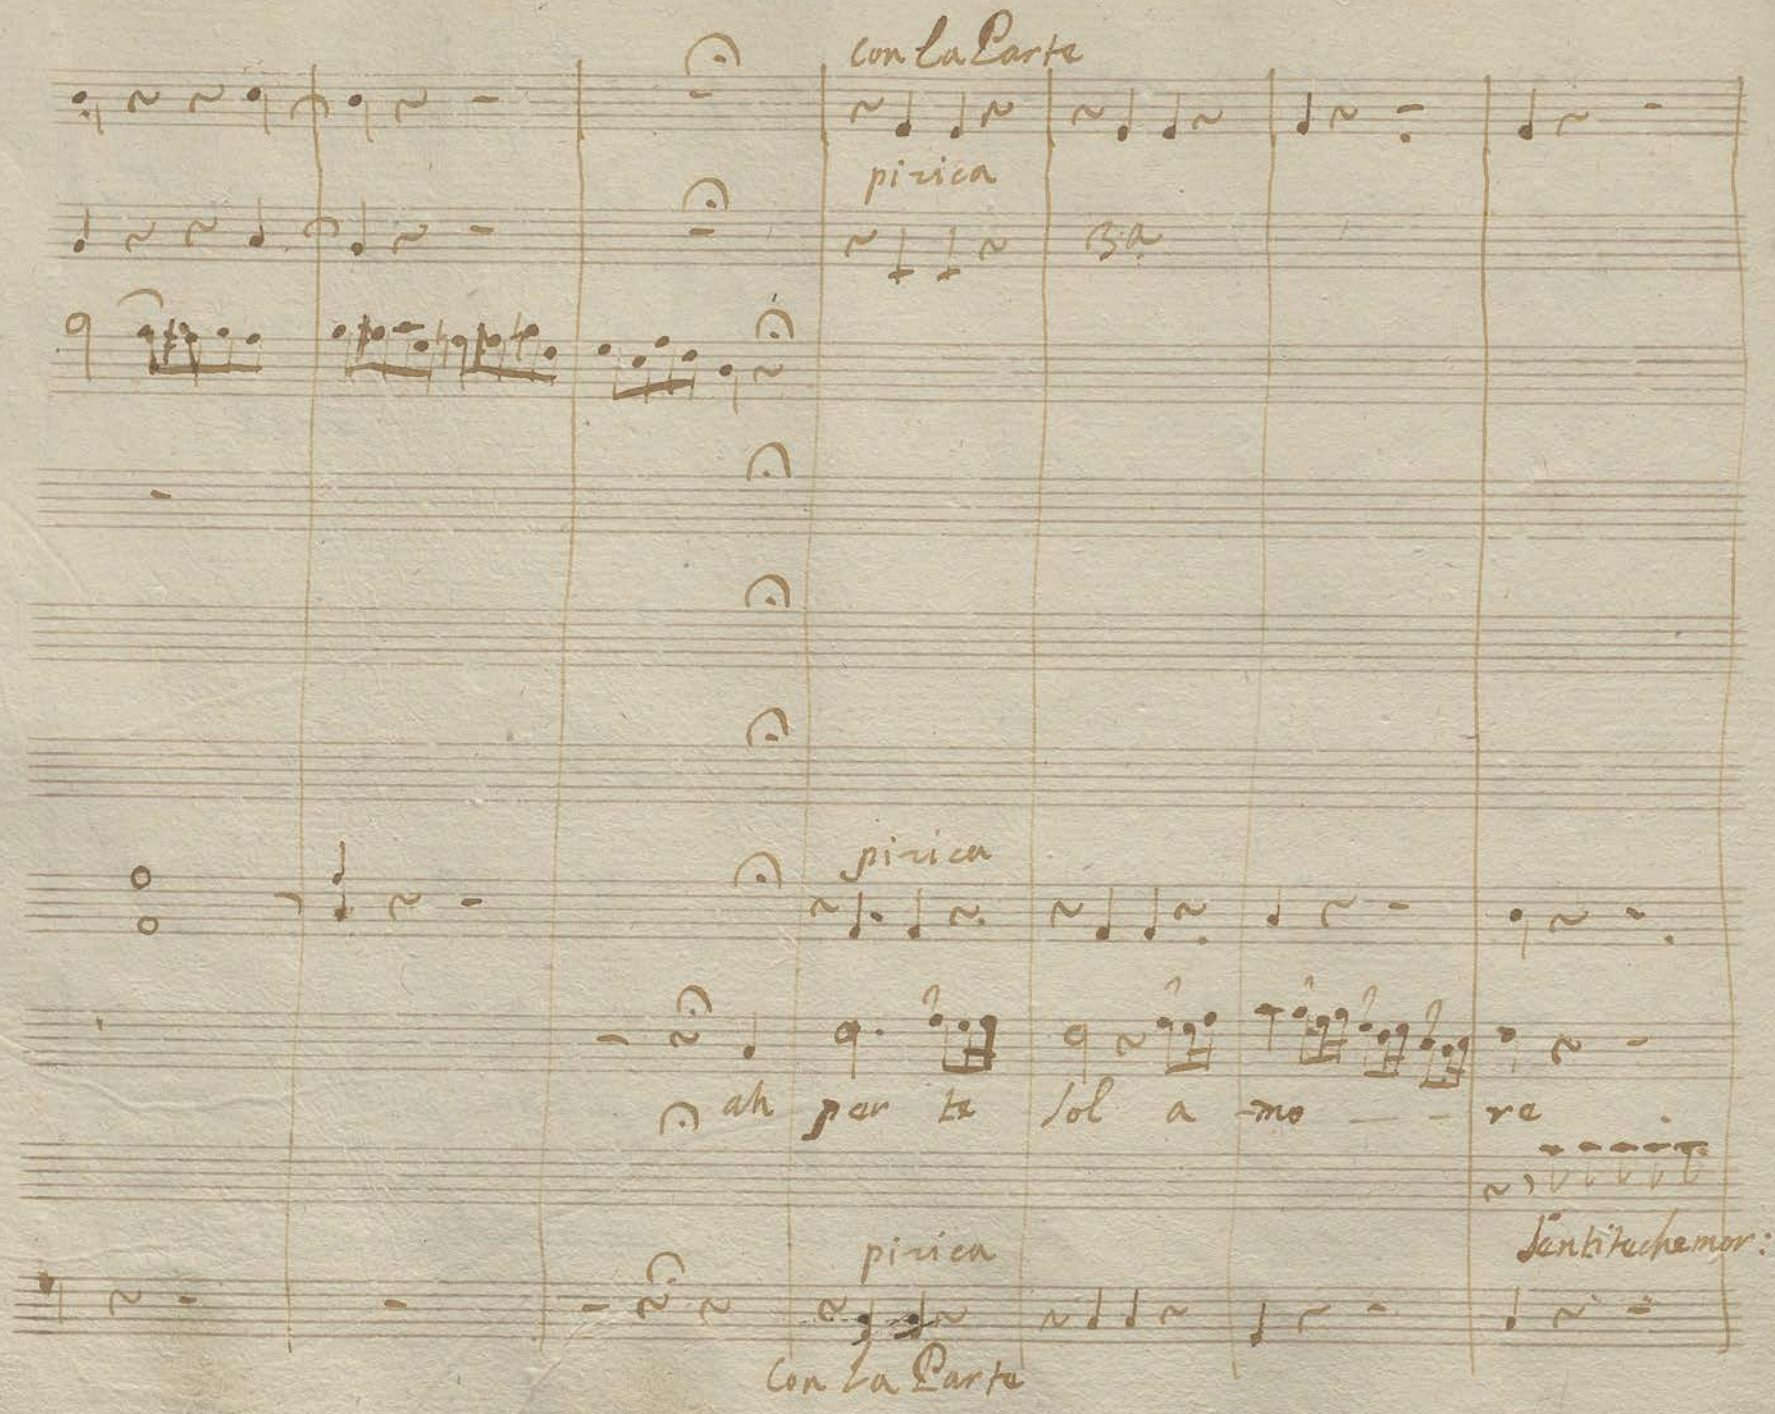 Con La Parte
pizica
3.a
pizica
ah per te sol a -mo - - re
Sentitechemor:
pizica
Con La Parte